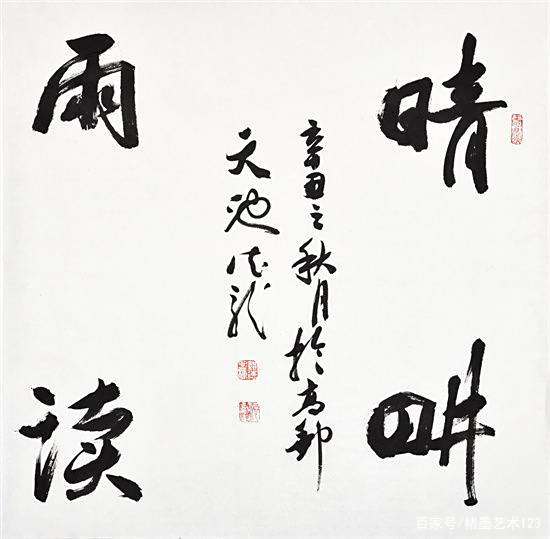 晴畊
雨读
辛丑之秋月於高邮
天池龙
百家号/楮墨艺术123